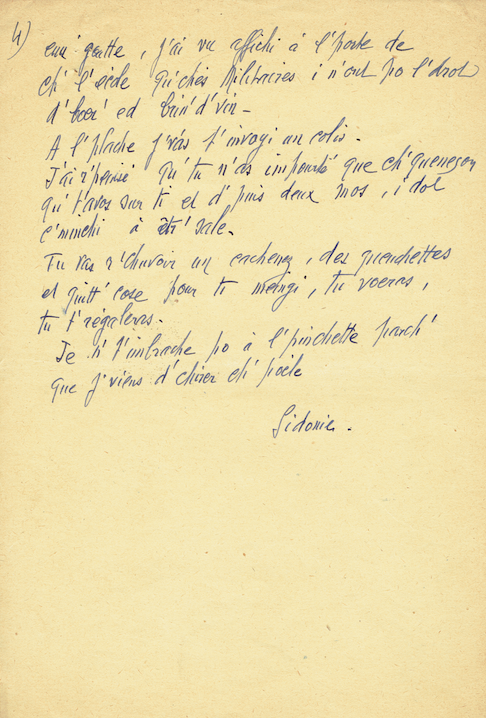 4)
enn' goutte, j'ai vu affichi à l'porte de
ch' l'école qu'chés Militaires i n'ont po l'drot
d'boer' ed brin d'vin -
A l'plache j'vas t'invoyi un colis.
J'ai r'pensé qu'tu n'as importé que ch'queneçon
qu't'avos sur ti et d'puis deux mos, i dot
c'minchi à ête' sale.
Tu vas r'chuvoir un cachenez, des queuchettes
et quitt' cose pour ti mingi, tu voeras,
tu t'régaleras.
Je n' t'imbrache po à l'pinchette parch'
que j'viens d'chirer ch' poêle
Sidonie.